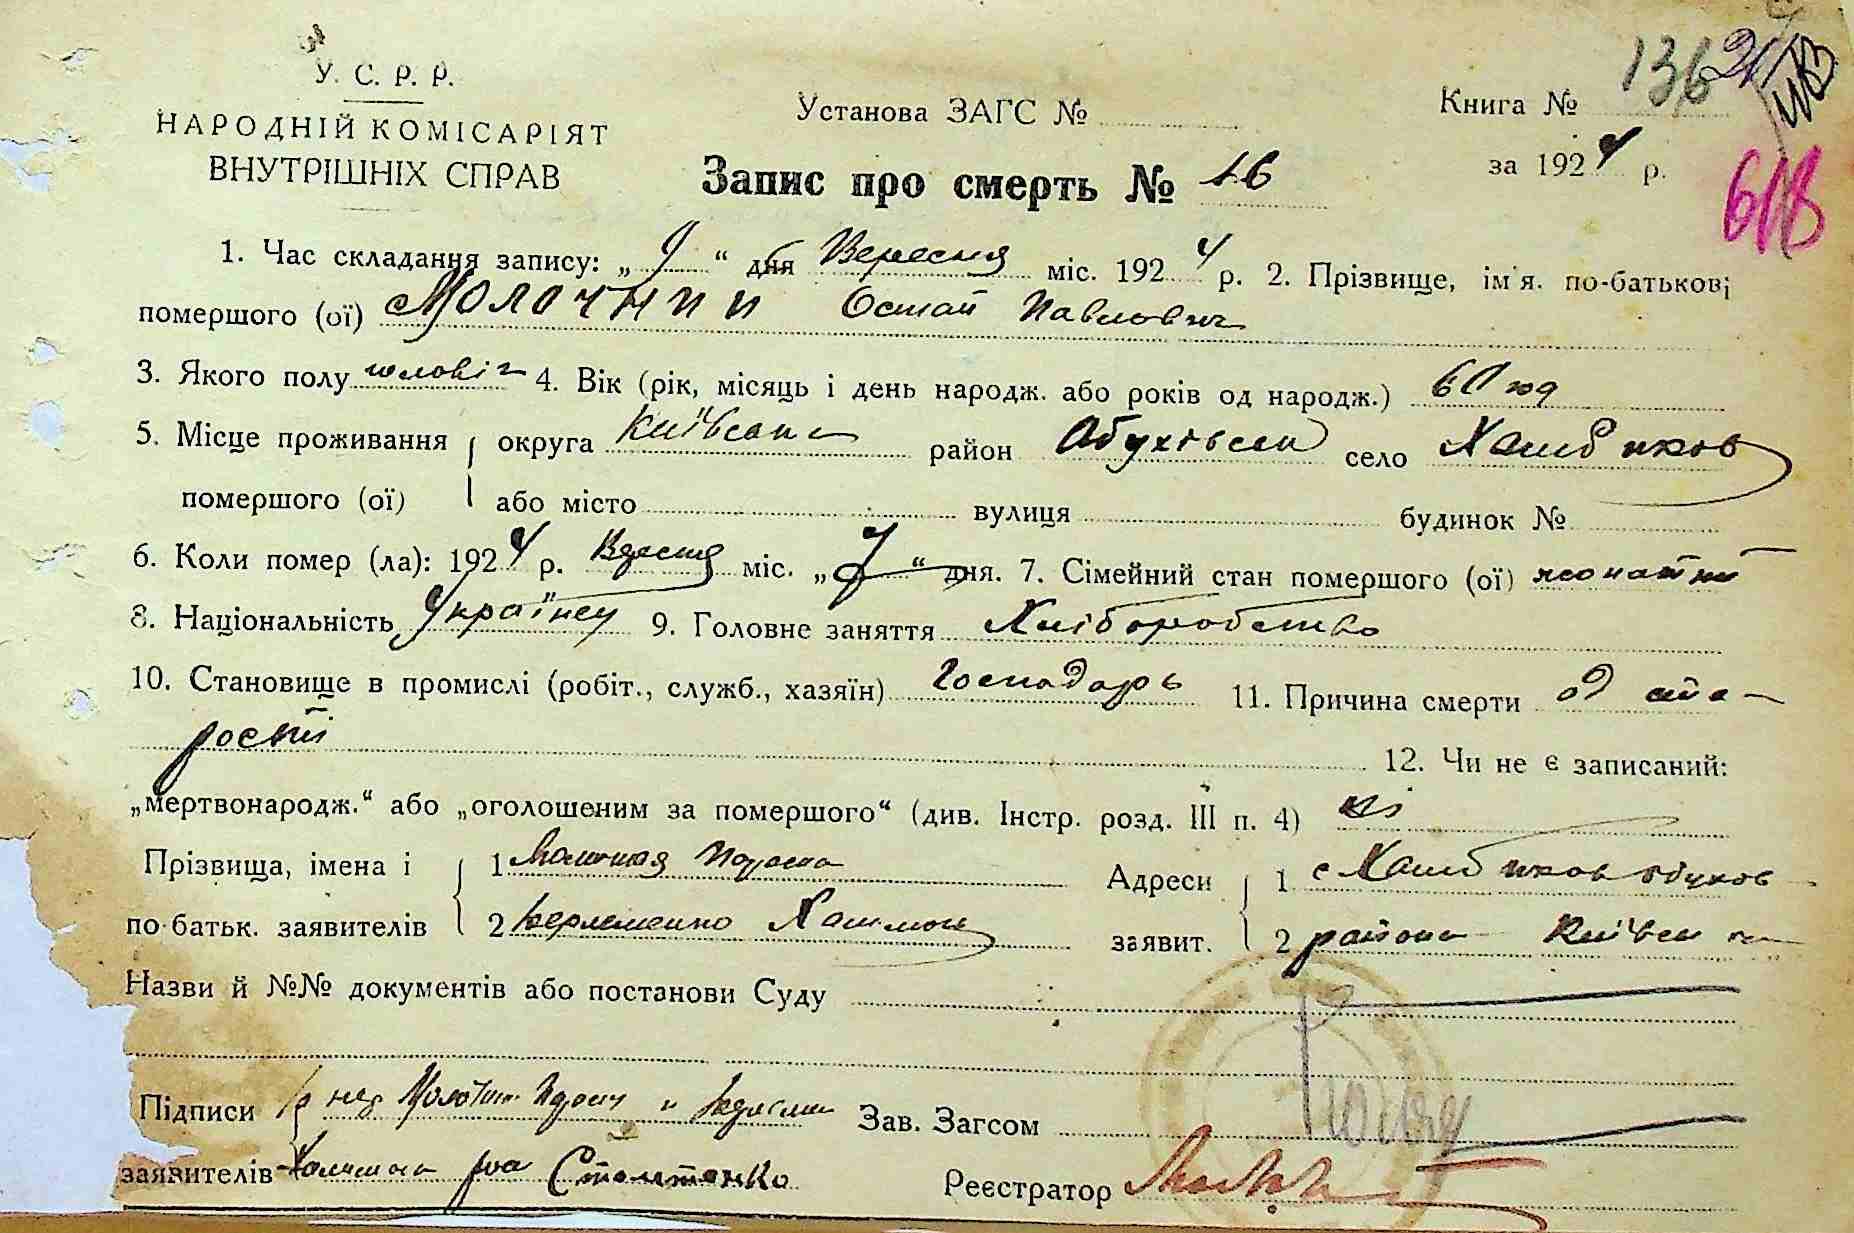 У. С. Р. Р.
НАРОДНІЙ КОМІСАРІЯТ
ВНУТРІШНІХ СПРАВ
Установа ЗАГС №
Книга № 136
за 1924 р.
618
Запис про смерть № 16
1. Час складання запису: „ 9 “ дня Вересня міс. 1924 р. 2. Прізвище, ім'я. по-батькові
помершого (ої) Молочний Остап Павлович
3. Якого полу чоловіч 4. Вік (рік, місяць і день народж. або років од народж.) 60 год
5. Місце проживання округа Київська район Обухівськ село
помершого (ої) або місто вулиця будинок №
6. Коли помер (ла): 1924 р. Вересня міс. „ 7 “ дня. 7. Сімейний стан помершого (ої) жонатий
8. Національність Українец 9. Головне заняття Хліборобство
10. Становище в промислі (робіт., служб., хазяїн) Господарь 11. Причина смерти од ста-
рости
12. Чи не є записаний:
„мертвонародж.“ або „оголошеним за помершого“ (див. Інстр. розд. III п. 4) ні
Прізвища, імена і 1 Молочная Адреси 1 с
по-батьк. заявителів 2 заявит. 2 района Київск
Назви й №№ документів або постанови Суду
Підписи Зав. Загсом
заявителів
Реєстратор